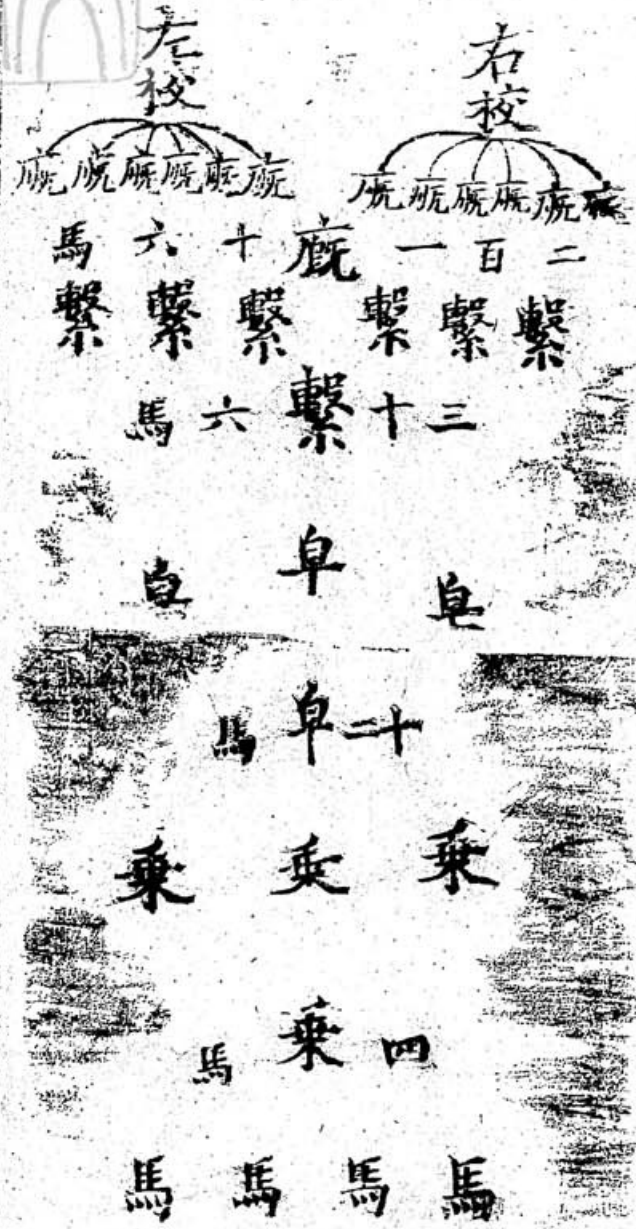 右校 左校
廐 廐 廐 廐 廐 廐 廐 廐 廐 廐 廐 廐
二 百 一 廐 十 六 馬
繫 繫 繫 繫 繫 繫
三 十 繫 六 馬
皂 皁 皁
十 二 皁 馬
乗 乗 乗
四 乗 馬
馬 馬 馬 馬